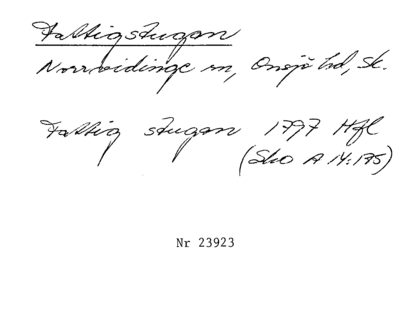 Fattigstugan
Norrvidinge sn, Onsjö hd, Sk.
Fattig stugan 1797 Hfl
(Sko A 14:175)
Nr 23923